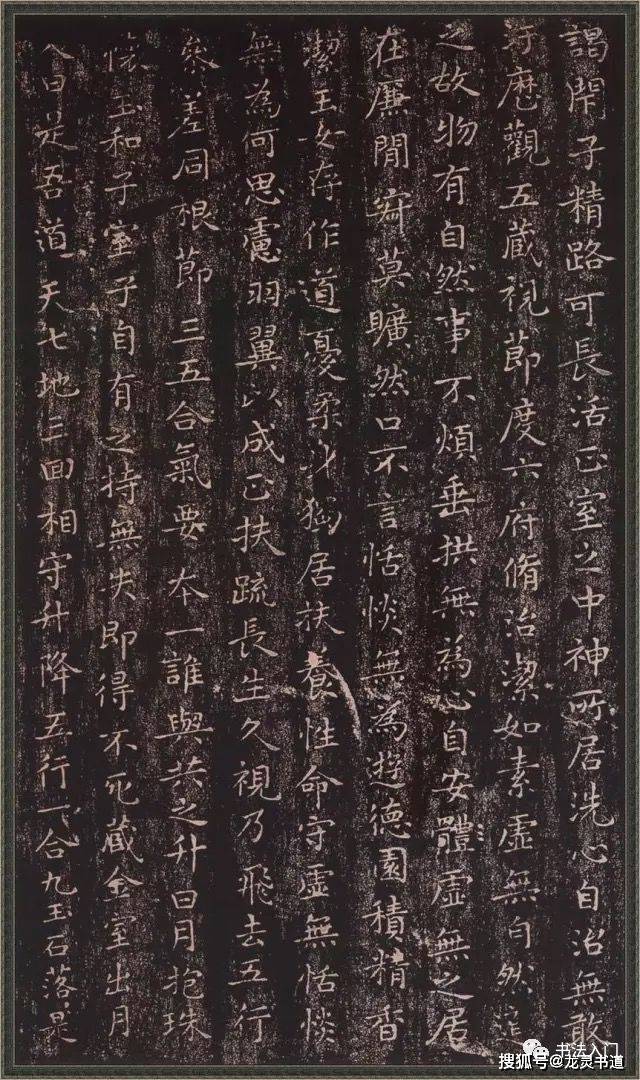 閇子精路可長活正室之中神所居洗心自治無敢
汙歷觀五藏視節度六府脩治潔如素虛無自然道
之故物有自然事不煩垂拱無為心自安體虛無之居
在廉間寂莫曠然口不言恬惔無為遊德園積精香
潔玉女存作道憂柔身獨居扶養性命守虛無恬惔
無為何思慮羽翼以成正扶疏長生久視乃飛去五行
參差同根節三五合氣要本一誰與共之升日月抱珠
懷玉和子室子自有之持無失即得不死藏金室出月
入日是吾道天七地三回相守升降五行一合九玉石落是
书法入门
搜狐号@龙灵书道